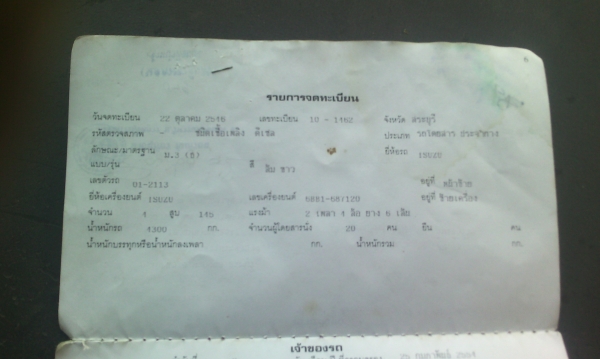 รายการจดทะเบียน
วันจดทะเบียน 22 ตุลาคม 2546 เลขทะเบียน 10 - 1462 จังหวัด สระบุรี
รหัสตรวจสภาพ - ชนิดเชื้อเพลิง ดีเซล ประเภท รถโดยสาร ประจำทาง
ลักษณะ/มาตรฐาน ม.3 (ข) ยี่ห้อรถ ISUZU
แบบ/รุ่น สี ส้ม ขาว
เลขตัวรถ 01-2113 อยู่ที่
ยี่ห้อเครื่องยนต์ ISUZU เลขเครื่องยนต์ 6BB1-687120 อยู่ที่ ซ้ายเครื่อง
จำนวน 4 สูบ 145 แรงม้า 2 เพลา 4 ล้อ ยาง 6 เส้น
น้ำหนักรถ 4300 กก. จำนวนผู้โดยสารนั่ง 20 คน ยืน คน
น้ำหนักบรรทุกหรือน้ำหนักลงเพลา กก. น้ำหนักรวม กก.
เจ้าของรถ